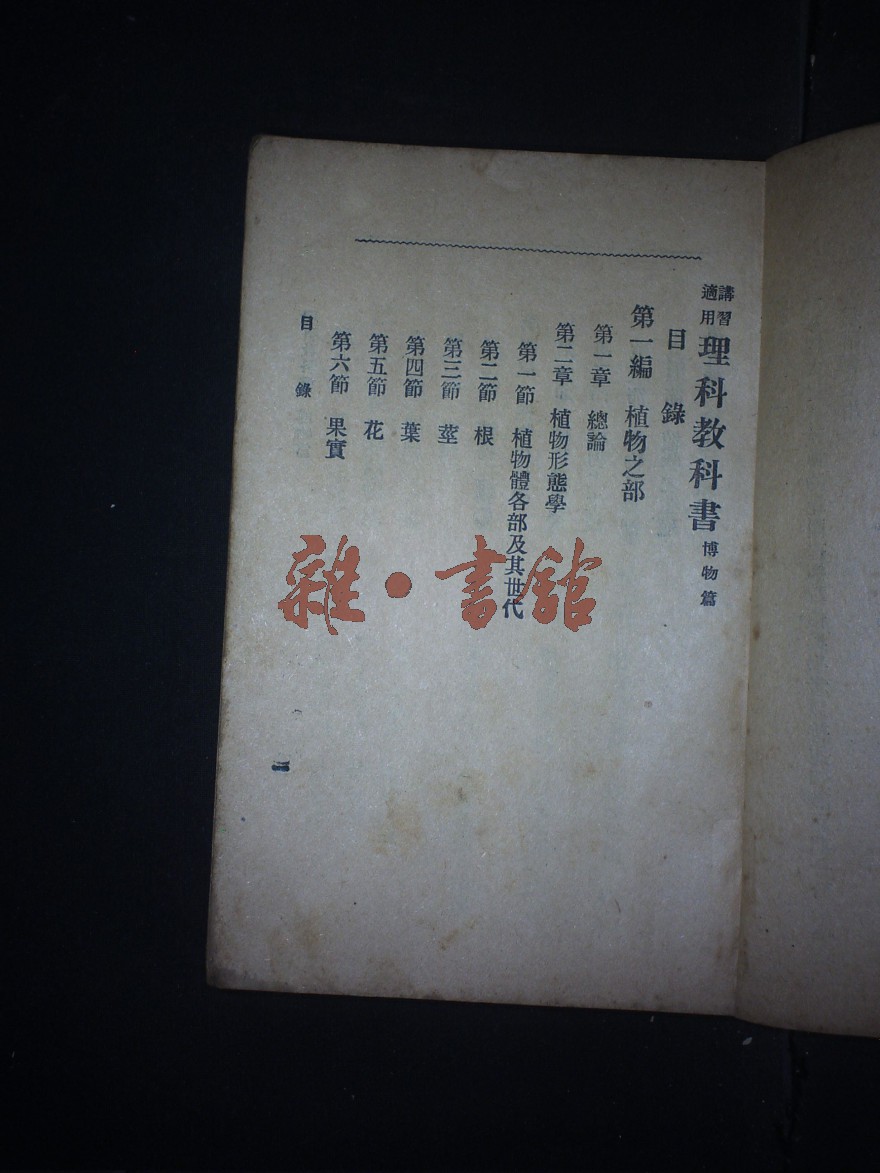 講習適用 理科教科書 博物篇
目錄
第一編 植物之部
第一章 總論
第二章 植物形態學
第一節 植物體各部及其世代
第二節 根
第三節 莖
第四節 葉
第五節 花
第六節 果實
目錄
雜·書館